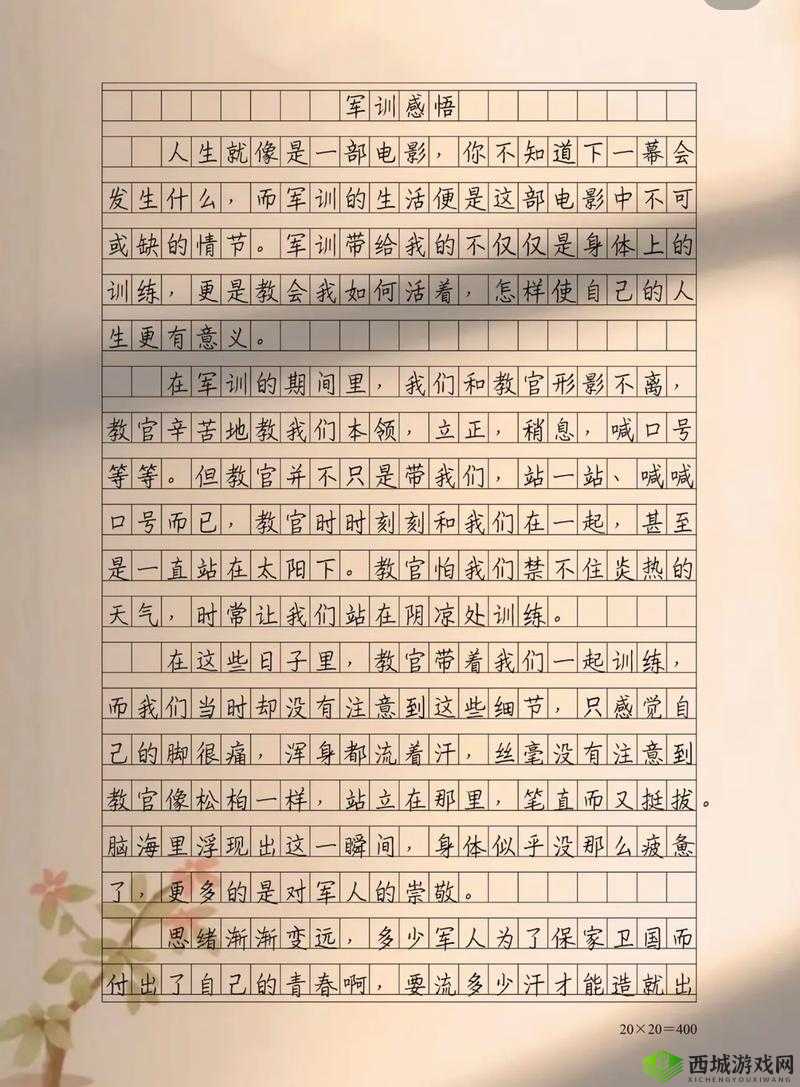 军训感悟
人生就像是一部电影，你不知道下一幕会
发生什么，而军训的生活便是这部电影中不可
或缺的情节。军训带给我的不仅仅是身体上的
训练，更是教会我如何活着，怎样使自己的人
生更有意义。
在军训的期间里，我们和教官形影不离，
教官辛苦地教我们本领，立正，稍息，喊口号
等等。但教官并不只是带我们，站一站、喊喊
口号而已，教官时时刻刻和我们在一起，甚至
是一直站在太阳下。教官怕我们禁不住炎热的
天气，时常让我们站在阴凉处训练。
在这些日子里，教官带着我们一起训练，
而我们当时却没有注意到这些细节，只感觉自
己的脚很痛，浑身都流着汗，丝毫没有注意到
教官像松柏一样，站立在那里，笔直而又挺拔。
脑海里浮现出这一瞬间，身体似乎没那么疲惫
了，更多的是对军人的崇敬。
思绪渐渐变远，多少军人为了保家卫国而
付出了自己的青春啊，要流多少汗才能造就出
20×20=400
西城游戏网
XICHENGYOUXIWANG